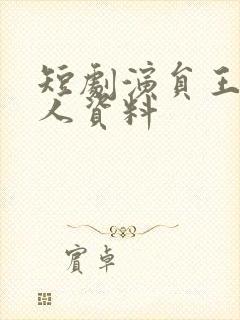 短劇演員王
人資料
賓卓